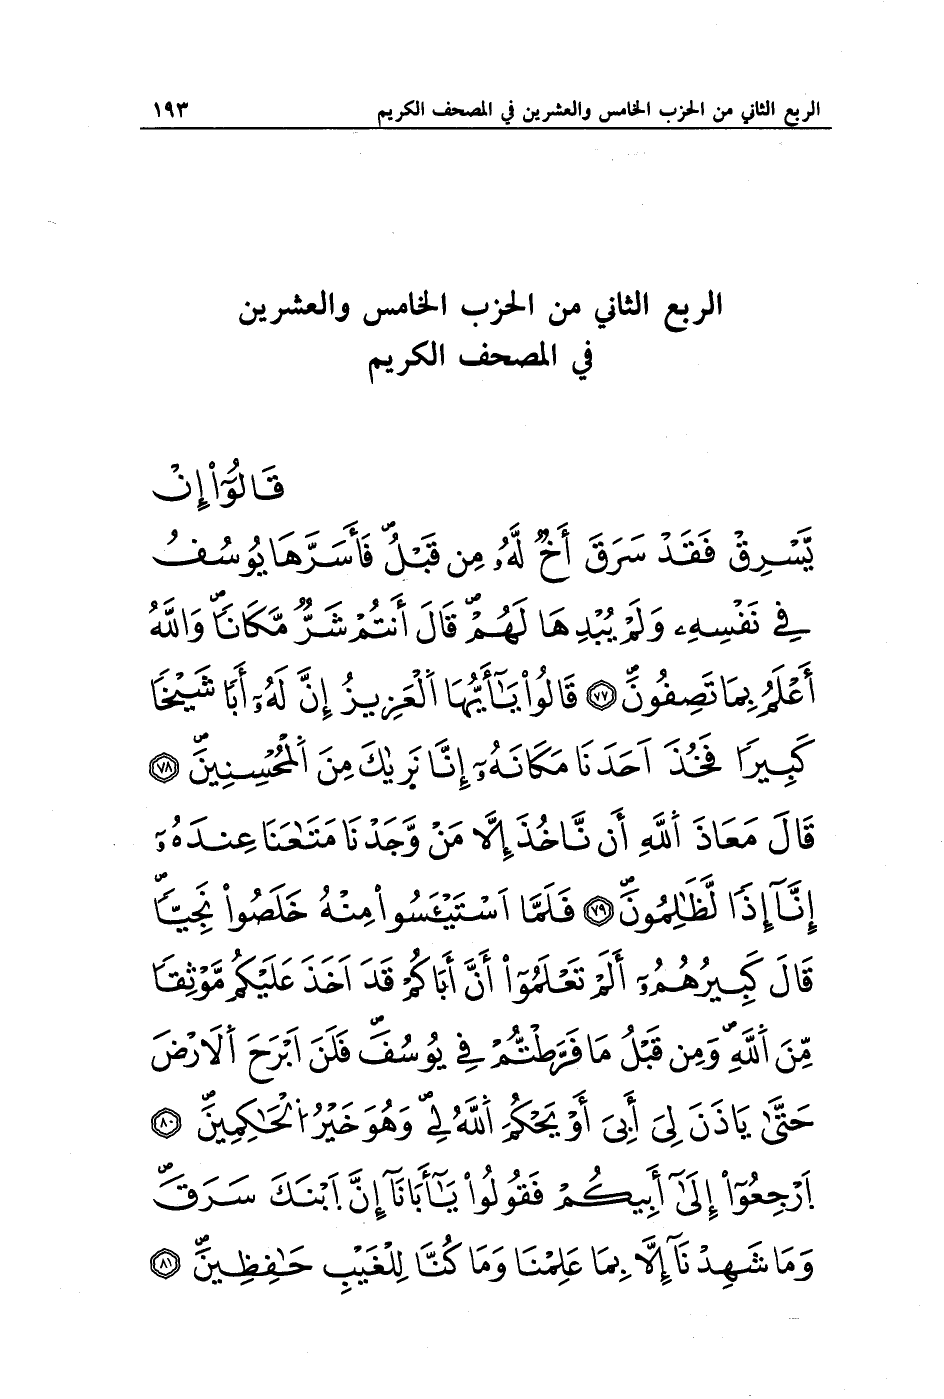 الربع الثاني من الحزب الخامس والعشرين في المصحف الكريم ١٩٣
الربع الثاني من الحزب الخامس والعشرين
في المصحف الكريم
قَالُوٓاْ إِنْ
يَّسْرِقْ فَقَدْ سَرَقَ أَخٌ لَّهُۥ مِن قَبْلُ فَأَسَرَّهَا يُوسُفُ
فِے نَفْسِهِۦ وَلَمْ يُبْدِهَا لَهُمْ قَالَ أَنتُمْ شَرٌّ مَّكَاناً وَاللَّهُ
أَعْلَمُ بِمَا تَصِفُونَ ٧٧ قَالُواْ يَٰٓأَيُّهَا اَ۬لْعَزِيزُ إِنَّ لَهُۥٓ أَباً شَيْخاً
كَبِيراً فَخُذَ اَحَدَنَا مَكَانَهُۥٓ إِنَّا نَرٜيٰكَ مِنَ اَ۬لْمُحْسِنِينَ ٧٨
قَالَ مَعَاذَ اَ۬للَّهِ أَن نَّاخُذَ إِلَّا مَنْ وَّجَدْنَا مَتَٰعَنَا عِندَهُۥٓ
إِنَّآ إِذاً لَّظَٰلِمُونَ ٧٩ فَلَمَّا اَسْتَيْـَٔسُواْ مِنْهُ خَلَصُواْ نَجِيّاً
قَالَ كَبِيرُهُمُۥٓ أَلَمْ تَعْلَمُوٓاْ أَنَّ أَبَاكُمْ قَدَ اَخَذَ عَلَيْكُم مَّوْثِقاً
مِّنَ اَ۬للَّهِ وَمِن قَبْلُ مَا فَرَّطتُّمْ فِے يُوسُفَ فَلَنَ اَبْرَحَ اَ۬لَارْضَ
حَتَّىٰ يَاذَنَ لِيَ أَبِيَ أَوْ يَحْكُمَ اَ۬للَّهُ لِے وَهُوَ خَيْرُ اُ۬لْحَٰكِمِينَ ٨٠
اَ۪رْجِعُوٓاْ إِلَىٰٓ أَبِيكُمْ فَقُولُواْ يَٰٓأَبَانَآ إِنَّ اَ۪بْنَكَ سَرَقَ
وَمَا شَهِدْنَآ إِلَّا بِمَا عَلِمْنَا وَمَا كُنَّا لِلْغَيْبِ حَٰفِظِينَ ٨١